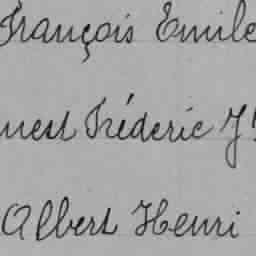 François Emile
nest Fréderic J
Albert Henri